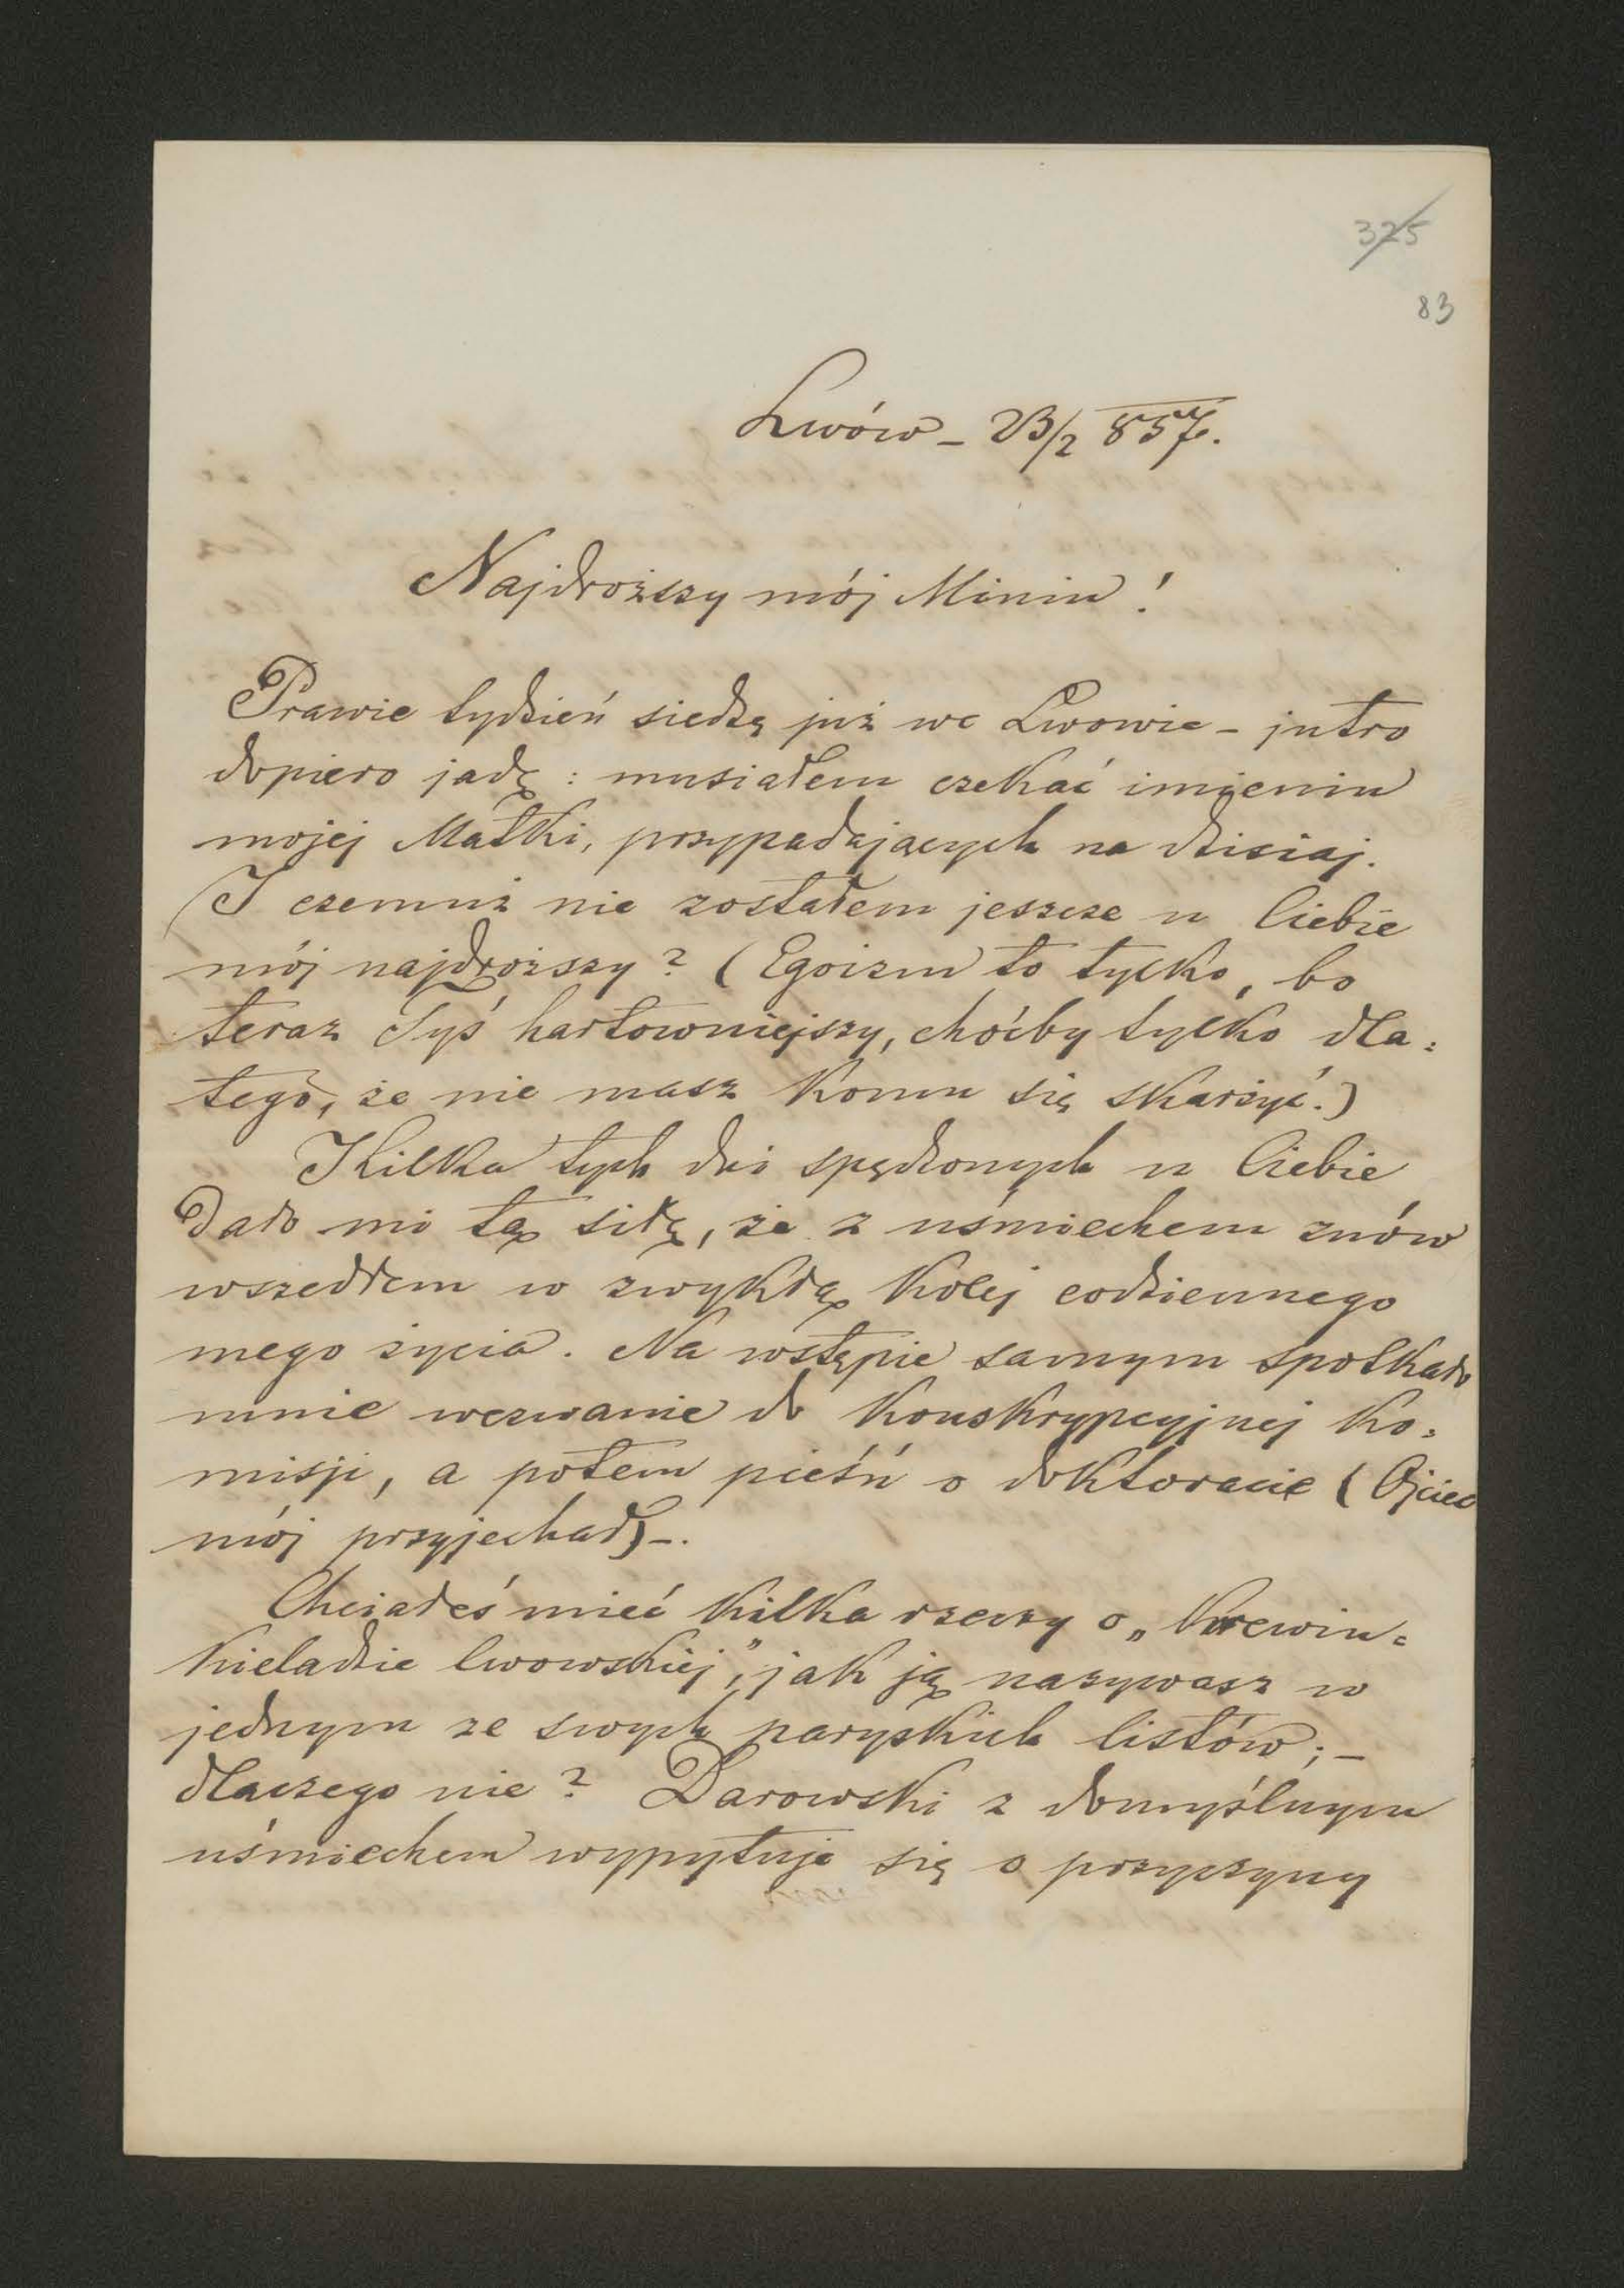 325
83
Lwów – 23/2 857.
Najdroższy mój Miniu!
Prawie tydzień siedzę już we Lwowie – jutro
dopiero jadę: musiałem czekać imienin
mojej Matki, przypadających na dzisiaj.
I czemuż nie zostałem jeszcze u Ciebie
mój najdroższy? (Egoizm to tylko, bo
teraz Tyś hartowniejszy, choćby tylko dla=
tego, że nie masz komu się skarżyć.)
Kilka tych dni spędzonych u Ciebie
dało mi tą siłę, że z uśmiechem znów
wszedłem w zwykłą kolej codziennego
mego życia. Na wstępie samym spotkało
mnie wezwanie do konskrypcyjnej ko=
misji, a potem pieśń o doktoracie (Ojciec
mój przyjechał) –.
Chciałeś mieć kilka rzeczy o „Krewin=
kieladzie lwowskiej", jak ją nazywasz w
jednym ze swych paryskich listów; –
dlaczego nie? Darowski z domyślnym
uśmiechem wypytuje się o przyczyny